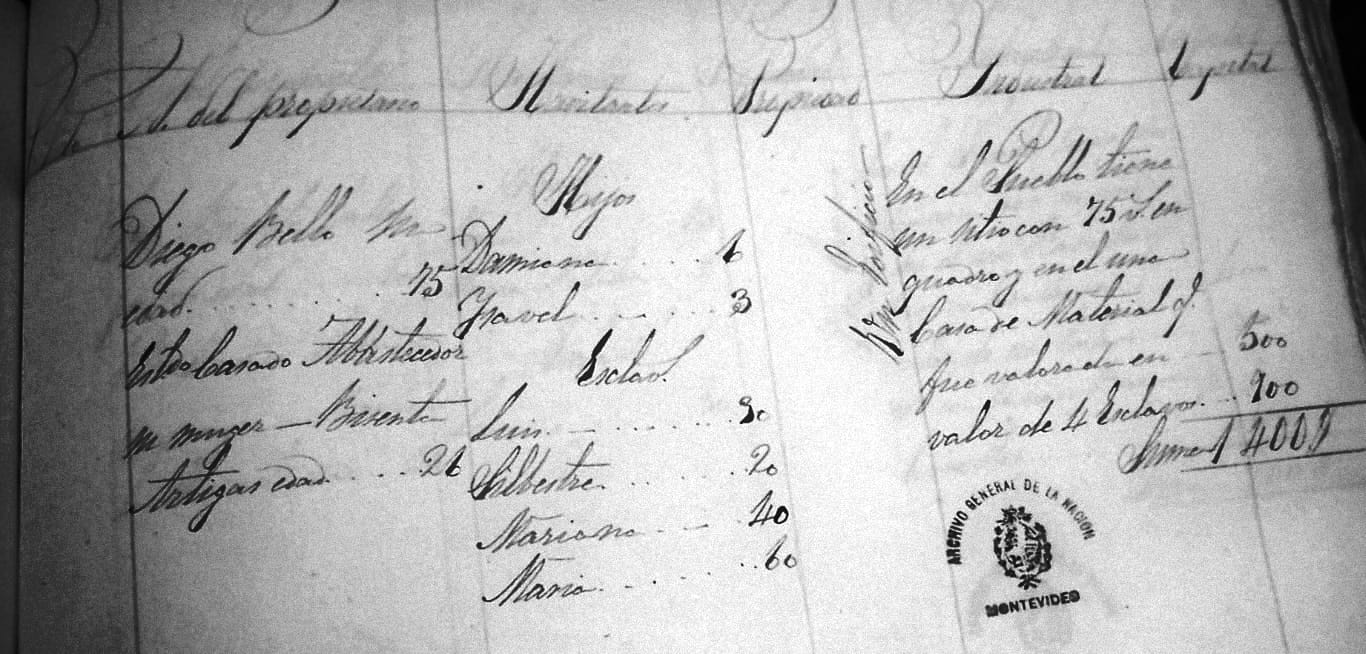 N. del propietario Havitantes Propiedad Industral Capital
Diego Bello su
edad. . . . . . . . . 75
Estdo Casado Abastecedor
su muger — Bisenta
Artigas edad . . . . 26
Hijos
Damiana . . . . . 6
Ysavel . . — . . . 3
Esclavs.
Luis. — . . . . . . . 30
Silbestre. . . . . . . 20
Mariana . . — 40
Maria . . . . . . . . 60
En el Pueblo tiene
un sitio con 75 vs. en
quadro y en el una
Casa de Material q.
fue valorada en — 500
valor de 4 Esclavos . . 900
Suma 1400
ARCHIVO GENERAL DE LA NACION
MONTEVIDEO